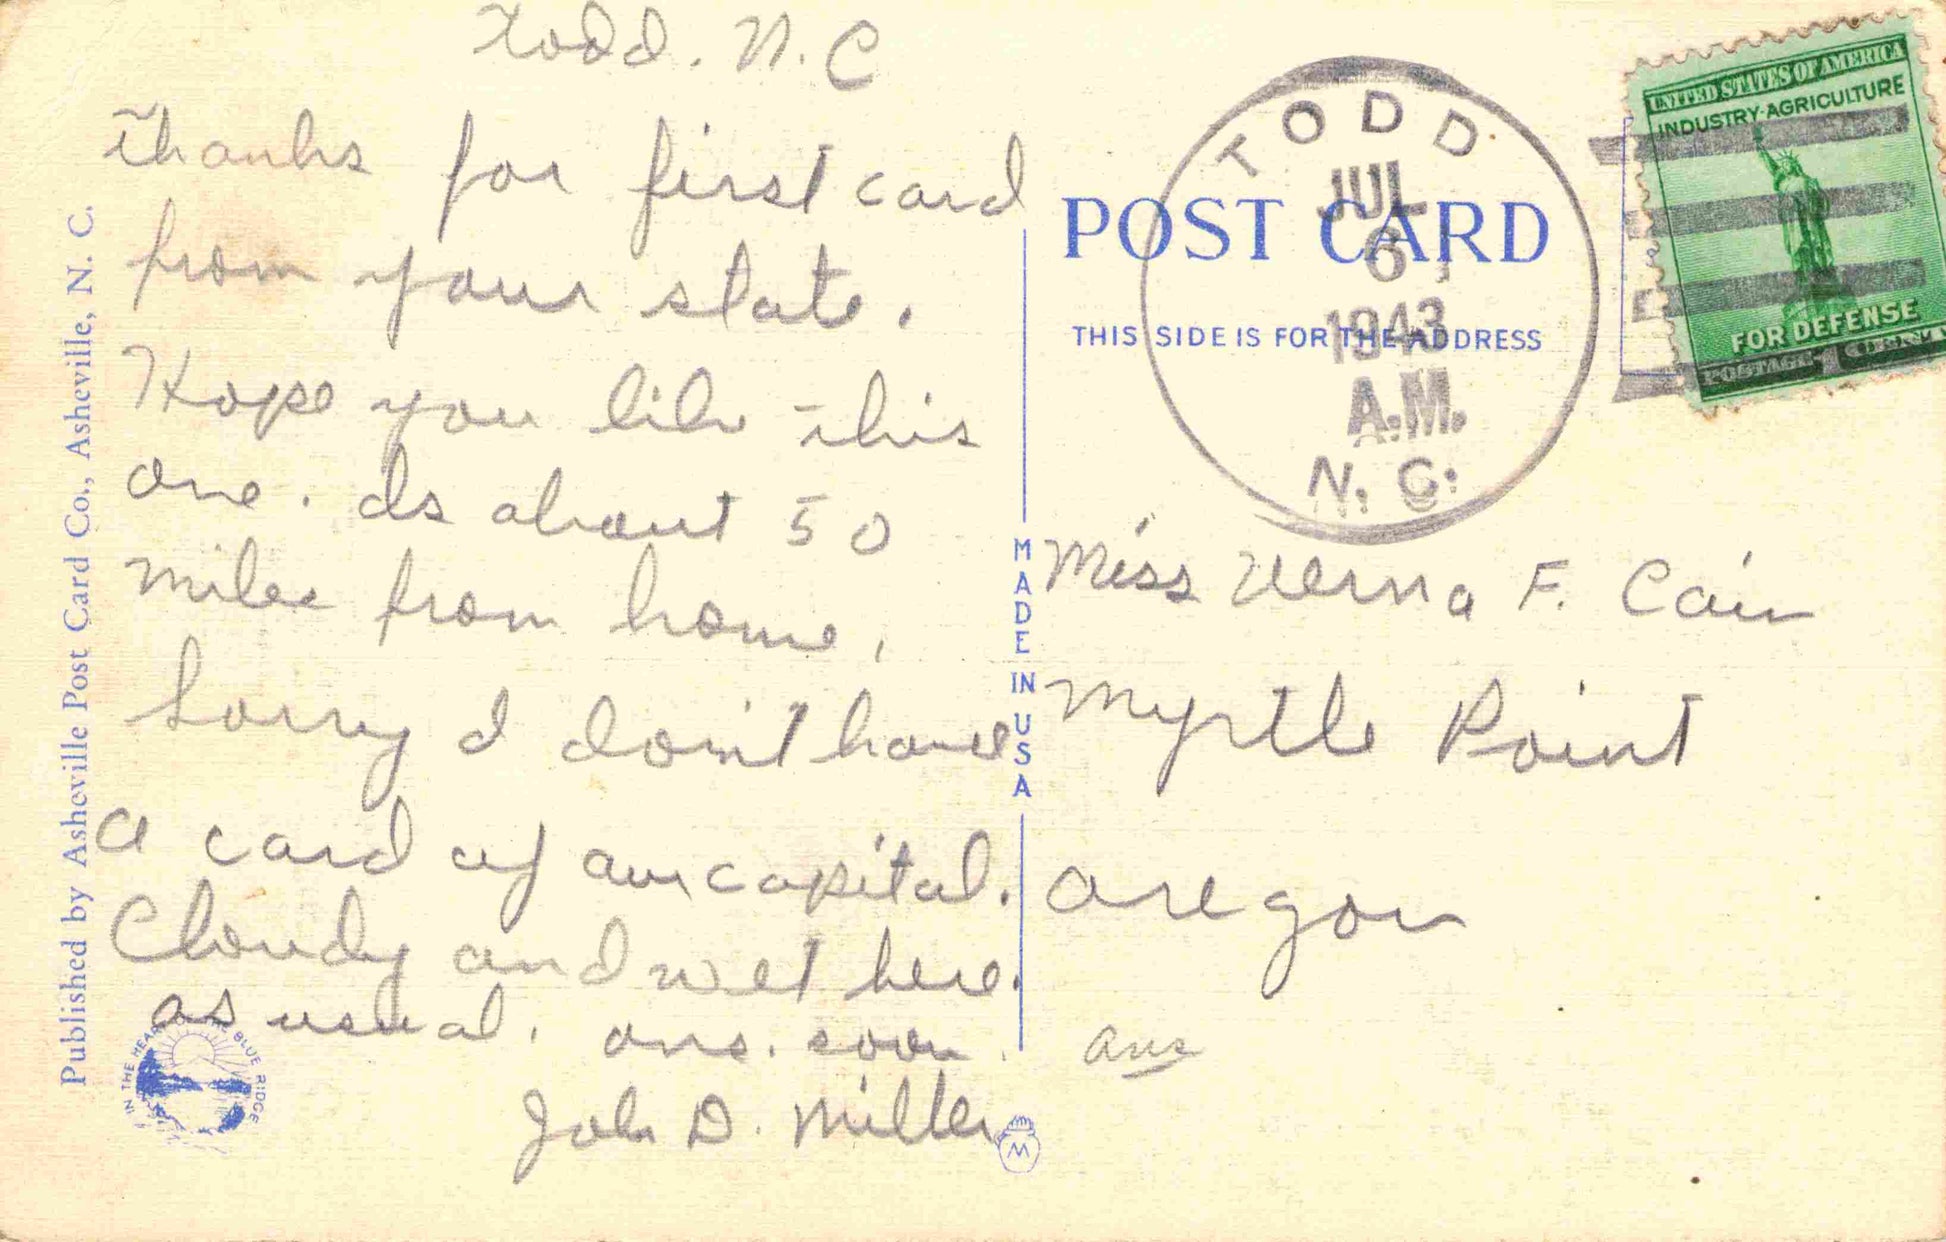 Todd. N.C
Thanks for first card
from your state.
Hope you like this
one. Is about 50
miles from home.
Sorry I don't have
a card of our capital.
Cloudy and wet here.
as usual. ans. soon.
John D. Miller
Published by Asheville Post Card Co., Asheville, N. C.
IN THE HEART OF THE BLUE RIDGE
MADE IN USA
M
POST CARD
THIS SIDE IS FOR THE ADDRESS
TODD
JUL
6
1943
A.M.
N. C.
UNITED STATES OF AMERICA
INDUSTRY-AGRICULTURE
FOR DEFENSE
POSTAGE 1 CENT
Miss Verna F. Cain
Myrtle Point
Oregon
Ans